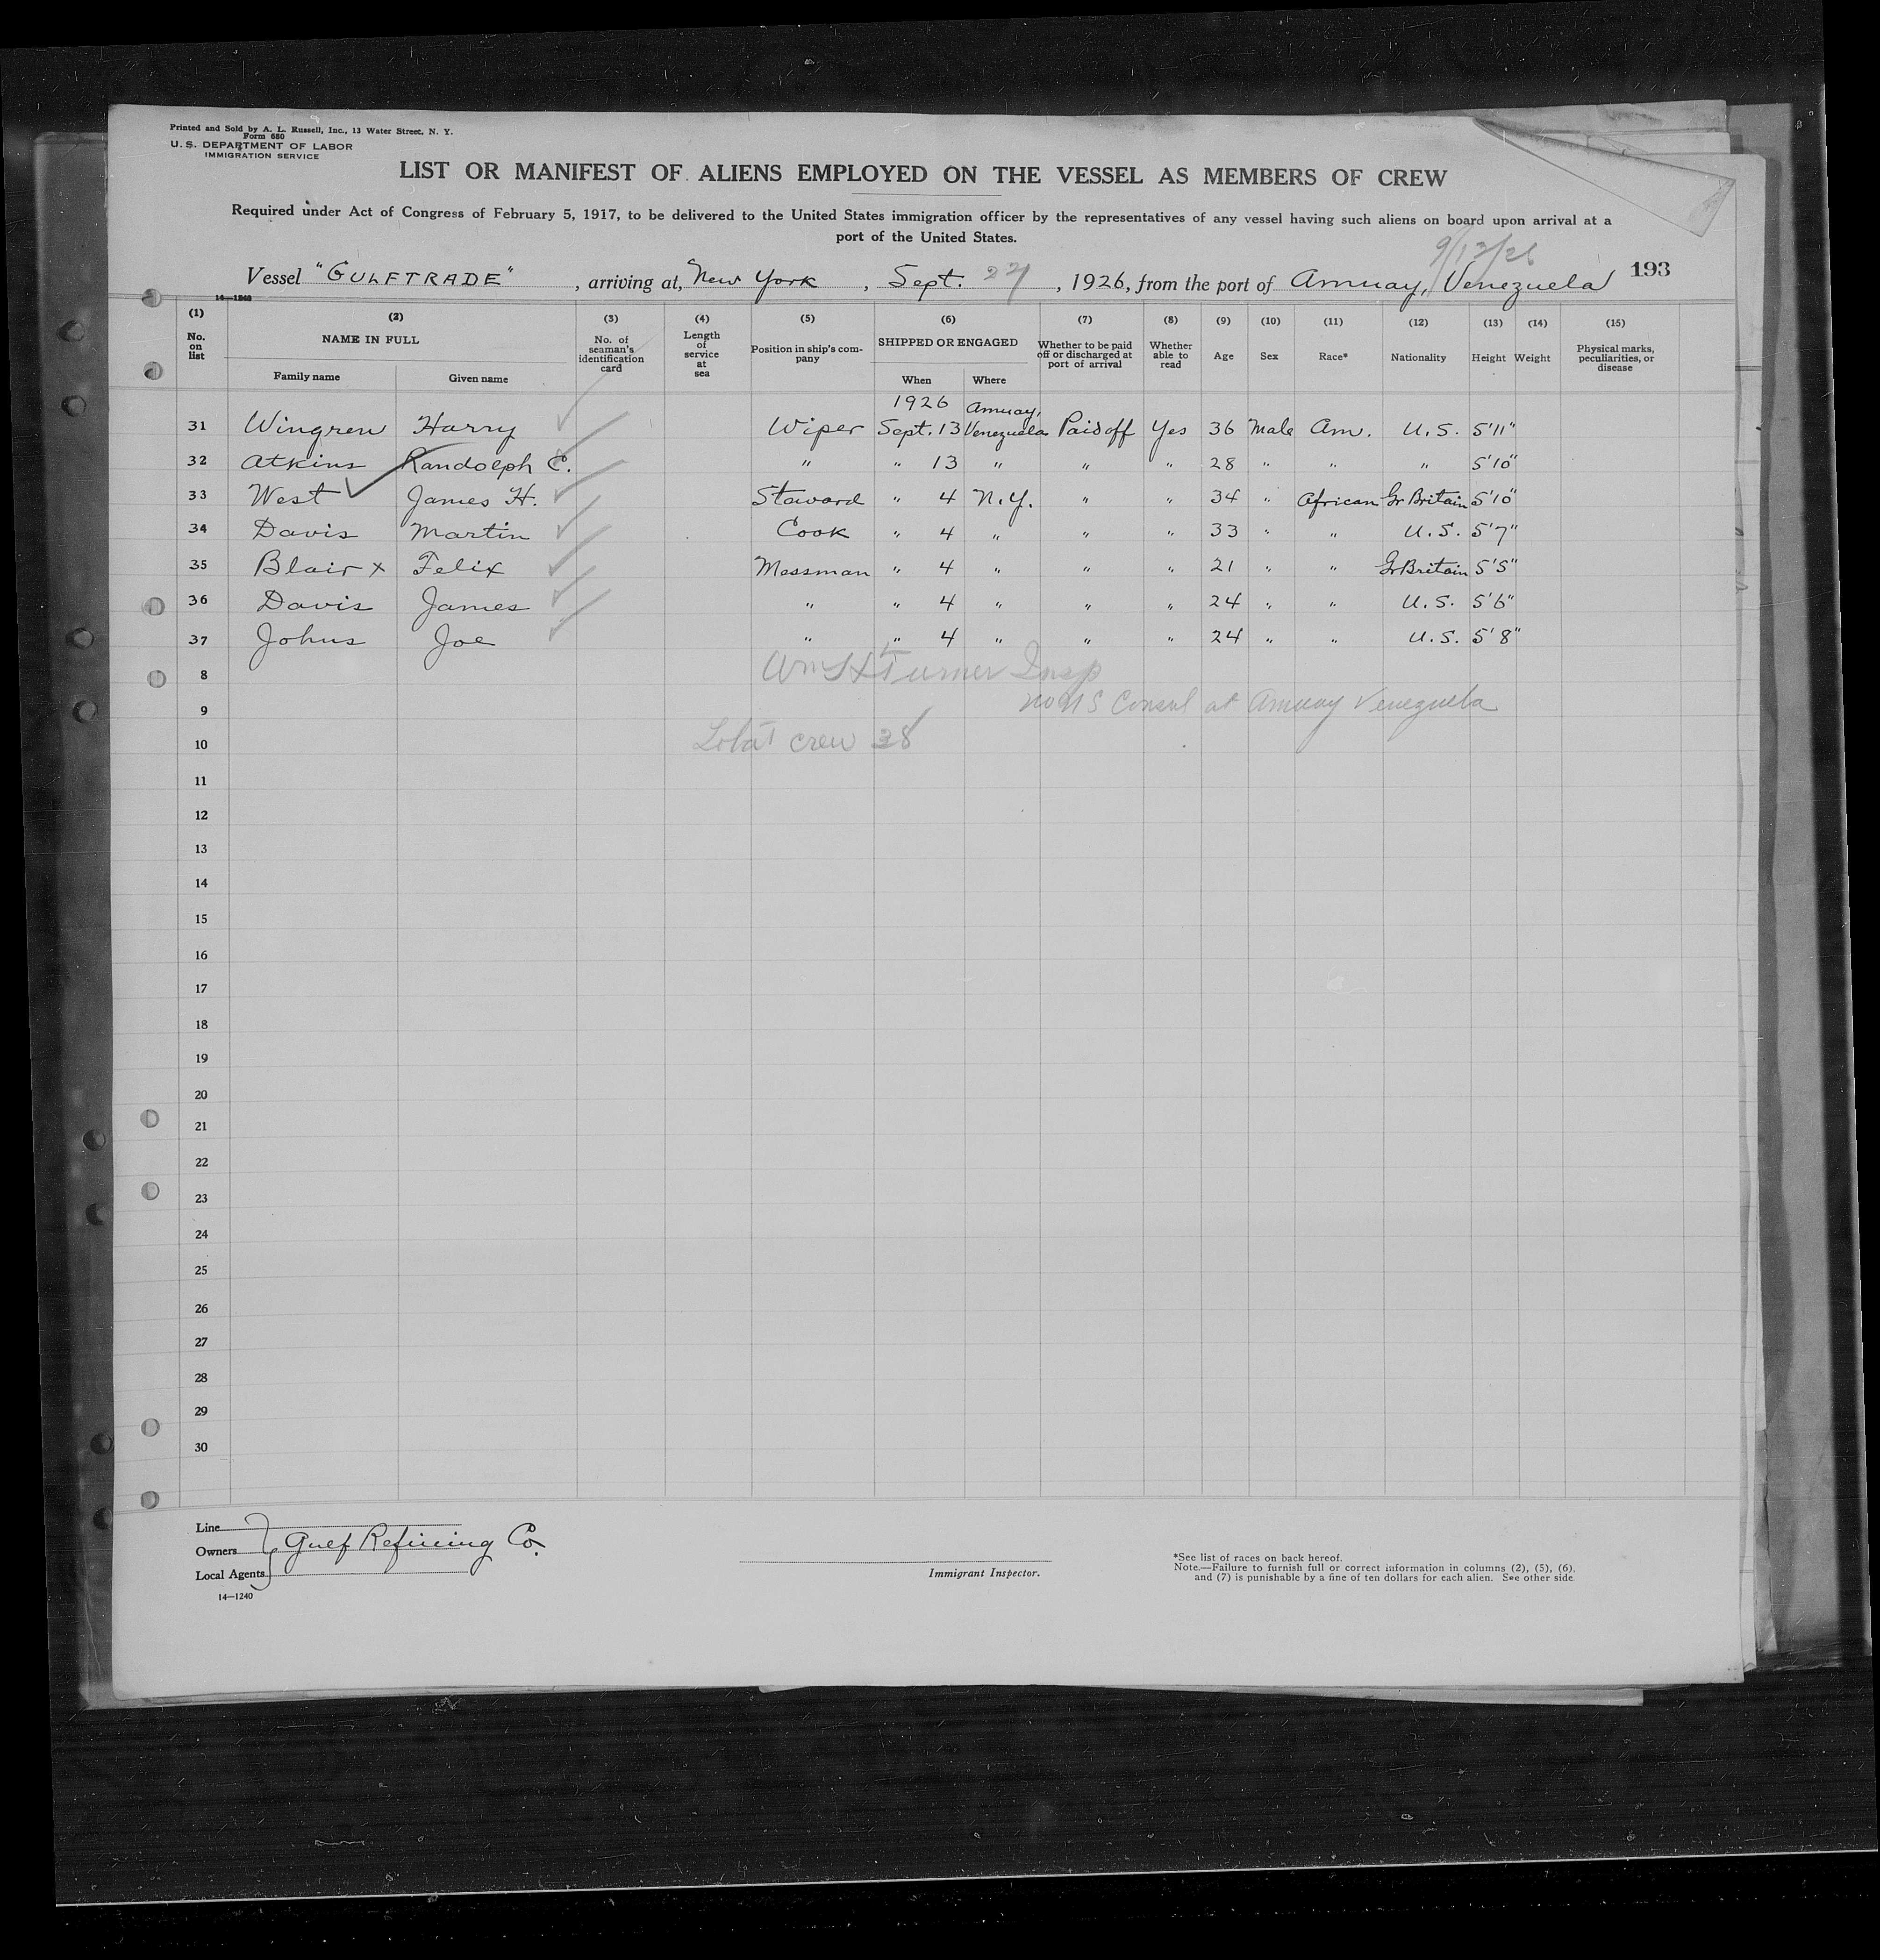 Printed and Sold by A. L. Russell, Inc., 13 Water Street, N. Y.
Form 680
U. S. DEPARTMENT OF LABOR
IMMIGRATION SERVICE
LIST OR MANIFEST OF ALIENS EMPLOYED ON THE VESSEL AS MEMBERS OF CREW
Required under Act of Congress of February 5, 1917, to be delivered to the United States immigration officer by the representatives of any vessel having such aliens on board upon arrival at a
port of the United States.
9/13/26
Vessel "GULFTRADE", arriving at, New York, Sept. 22, 1926, from the port of Amuay, Venezuela 193
14—1240
(1) (2) (3) (4) (5) (6) (7) (8) (9) (10) (11) (12) (13) (14) (15)
No. on list NAME IN FULL Family name Given name No. of seaman's identification card Length of service at sea Position in ship's company SHIPPED OR ENGAGED When Where Whether to be paid off or discharged at port of arrival Whether able to read Age Sex Race* Nationality Height Weight Physical marks, peculiarities, or disease
1926 Amuay,
31 Wingren Harry Wiper Sept. 13 Venezuela Paid off Yes 36 Male Am. U.S. 5'11"
32 Atkins Randolph C. " " 13 " " " 28 " " " 5'10"
33 West James H. Steward " 4 N.Y. " " 34 " African Gr Britain 5'10"
34 Davis Martin Cook " 4 " " " 33 " " U.S. 5'7"
35 Blair x Felix Messman " 4 " " " 21 " " Gr Britain 5'5"
36 Davis James " " 4 " " " 24 " " U.S. 5'6"
37 Johns Joe " " 4 " " " 24 " " U.S. 5'8"
8 Wm H Turner Insp
9 no US Consul at Amuay Venezuela
10 Total crew 38
11
12
13
14
15
16
17
18
19
20
21
22
23
24
25
26
27
28
29
30
Line
Owners Gulf Refining Co.
Local Agents
14—1240
Immigrant Inspector.
*See list of races on back hereof.
Note.—Failure to furnish full or correct information in columns (2), (5), (6).
and (7) is punishable by a fine of ten dollars for each alien. See other side